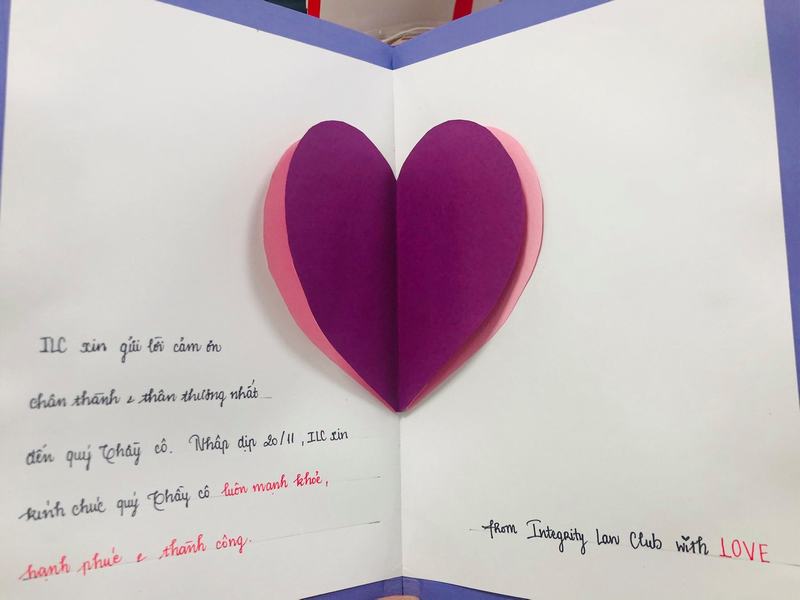 ILC xin gửi lời cảm ơn
chân thành & thân thương nhất
đến quý Thầy cô. Nhân dịp 20/11, ILC xin
kính chúc quý Thầy cô luôn mạnh khỏe,
hạnh phúc & thành công.
from Integrity Law Club with LOVE